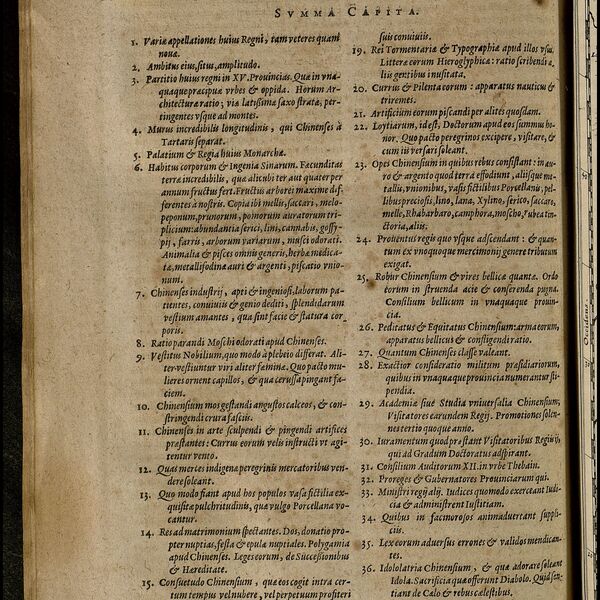 SVMMA CAPITA.
1. Variæ appellationes huius Regni, tam veteres quam
novæ.
2. Ambitus eius, situs, amplitudo.
3. Partitio huius regni in XV. Provincias. Quæ in vna
quaque præcipuæ vrbes & oppida. Horum Ar-
chitecturæ ratio; viæ latissimæ saxo stratæ, per-
tingentes vsque ad montes.
4. Murus incredibilis longitudinis, qui Chinenses à
Tartaris separat.
5. Palatium & Regia huius Monarchæ.
6. Habitus corporum & Ingenia Sinarum. Fæcunditas
terræ incredibilis, quæ alicubi ter aut quater per
annum fructus fert. Fructus arborei maxime dif-
ferentes à nostris. Copia ibi mellis, saccari, melo-
peponum, prunorum, pomorum auratorum tri-
plicium: abundantia serici, lini, cannabis, gossy-
pij, farris, arborum variarum, musci odorati.
Animalia & pisces omnis generis, herbæ medica-
tæ, metallifodinæ auri & argenti, piscatio vnio-
num.
7. Chinenses industrij, apti & ingeniosi, laborum pa-
tientes, conviviis & genio dediti, splendidarum
vestium amantes, qua sint facie & statura cor-
poris.
8. Ratio parandi Moschi odorati apud Chinenses.
9. Vestitus Nobilium, quo modo à plebeio differat. Ali-
ter vestiuntur viri aliter fæminæ. Quo pacto mu-
lieres ornent capillos, & qua cerussa pingant fa-
ciem.
10. Chinensium mos gestandi angustos calceos, & con-
stringendi crura fasciis.
11. Chinenses in arte sculpendi & pingendi artifices
præstantes: Currus eorum velis instructi vt agi-
tentur vento.
12. Quas merces indigenæ peregrinis mercatoribus ven-
dere soleant.
13. Quo modo fiant apud hos populos vasa fictilia ex-
quisitæ pulchritudinis, quæ vulgo Porcellana vo-
cantur.
14. Res ad matrimonium spectantes. Dos, donatio pro-
pter nuptias, festa & epulæ nuptiales. Polygamia
apud Chinenses. Leges eorum, de Successionibus
& Hæreditate.
15. Consuetudo Chinensium, quæ eos cogit intra cer-
tum tempus vel nubere, vel perpetuum profiteri
suis conviviis.
19. Rei Tormentariæ & Typographiæ apud illos vsus.
Litteræ eorum Hieroglyphicæ: ratio scribendi a-
liis gentibus inusitata.
20. Currus & Pilenta eorum: apparatus nauticus &
triremes.
21. Artificium eorum piscandi per alites quosdam.
22. Loytiarum, id est, Doctorum apud eos summus ho-
nor. Quo pacto peregrinos excipere, visitare, &
cum iis versari soleant.
23. Opes Chinensium in quibus rebus consistant: in au-
ro & argento quod terra effodiunt, aliisque me-
tallis, vnionibus, vasis fictilibus Porcellanis, pel-
libus preciosis, lino, lana, Xylino, serico, saccaro,
melle, Rhabarbaro, camphora, moscho, rubea tin-
ctoria, aliis.
24. Proventus regis quo vsque adscendant: & quan-
tum ex vnoquoque mercimonij genere tributum
exigat.
25. Robur Chinensium & vires bellicæ quantæ. Ordo
eorum in struenda acie & conserenda pugna.
Consilium bellicum in vnaquaque provin-
cia.
26. Peditatus & Equitatus Chinensium: arma eorum,
apparatus bellicus & confligendi ratio.
27. Quantum Chinenses classe valeant.
28. Exactior consideratio militum præsidiariorum,
quibus in vnaquaque provincia numerantur sti-
pendia.
29. Academiæ sive Studia vniversalia Chinensium,
Visitatores earundem Regij. Promotiones solen-
nes tertio quoque anno.
30. Iuramentum quod præstant Visitatoribus Regiis ij,
qui ad Gradum Doctoratus adspirant.
31. Consilium Auditorum XII. in vrbe Thebain.
32. Proreges & Gubernatores Provinciarum qui.
33. Ministri regij alij. Iudices quomodo exerceant Iudi-
cia & administrent Iustitiam.
34. Quibus in facinorosos animadvertant suppli-
ciis.
35. Lex eorum adversus errones & validos mendican-
tes.
36. Idololatria Chinensium, & quæ adorare soleant
Idola. Sacrificia quæ offerunt Diabolo. Quid sen-
tiant de Cælo & rebus cælestibus.
Occidens.